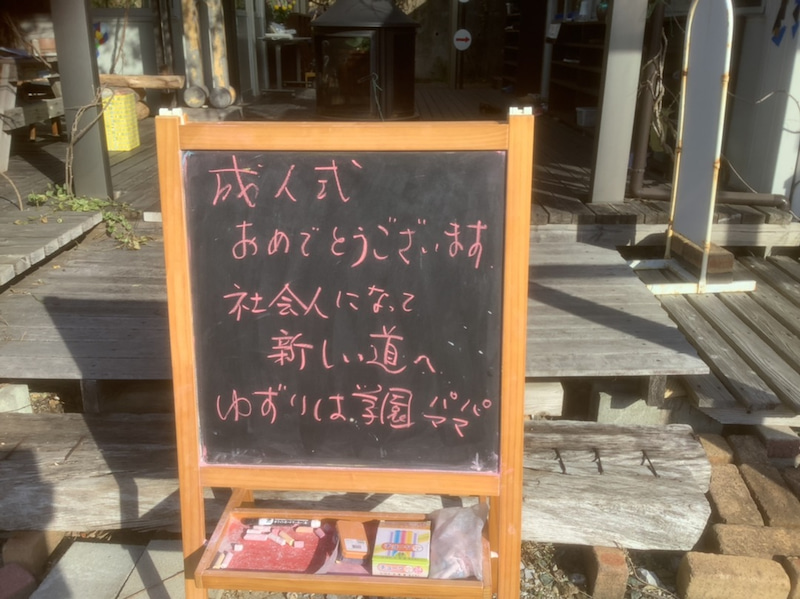 成人式
おめでとうございます
社会人になって
新しい道へ
ゆずりは学園 パパ
ママ